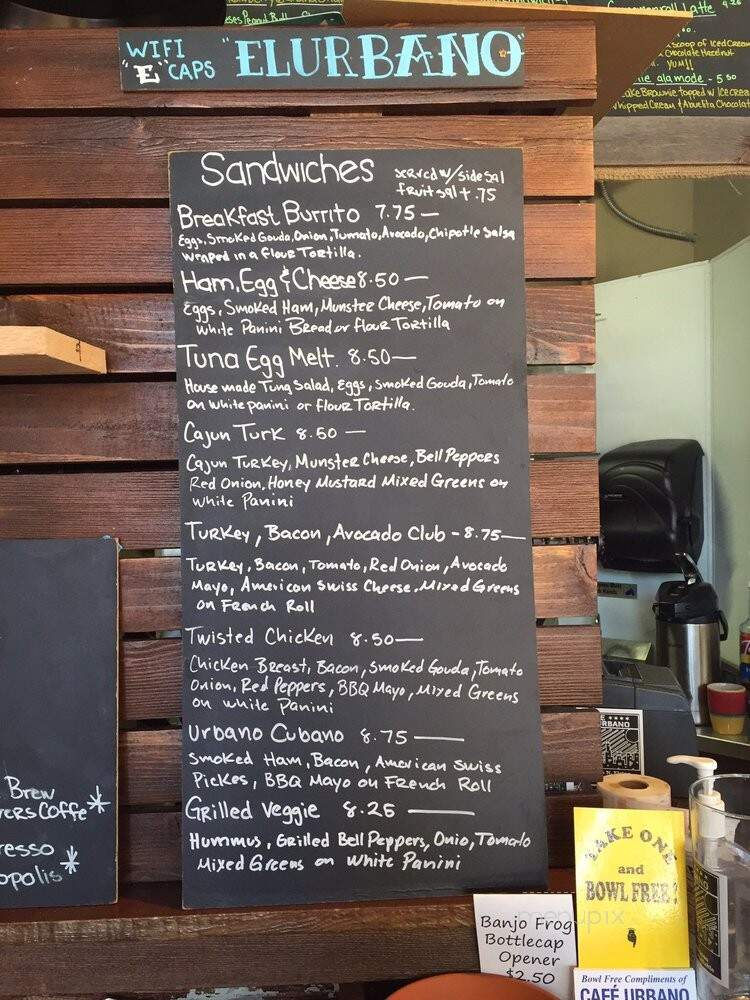 ses Peanut Butt
Latte 4.26
Scoop of Iced Cream
Chocolate Hazelnut
YUM!!
ie alamode - 5.50
ake Brownie topped w/ Ice crea
Whipped Cream & Abuelita Chocolat
WIFI "E" CAPS
"ELURBANO"
Sandwiches served w/ side sal
fruit sal + .75
Breakfast Burrito 7.75 —
Eggs, Smoked Gouda, Onion, Tumato, Avocado, Chipotle Salsa
wraped in a flour Tortilla.
Ham, Egg & Cheese 8.50 —
Eggs, Smoked Ham, Munster Cheese, Tomato on
White Panini Bread or flour Tortilla
Tuna Egg Melt. 8.50—
House made Tuna Salad, Eggs, Smoked Gouda, Tomato
on white panini or flour Tortilla.
Cajun Turk 8.50 —
Cajun Turkey, Munster Cheese, Bell Peppers
Red Onion, Honey Mustard Mixed Greens on
White Panini
Turkey, Bacon, Avocado Club - 8.75—
Turkey, Bacon, Tomato, Red Onion, Avocado
Mayo, American Swiss Cheese, Mixed Greens
on French Roll
Twisted Chicken 8.50—
Chicken Breast, Bacon, Smoked Gouda, Tomato
Onion, Red Peppers, BBQ Mayo, Mixed Greens
on white Panini
Urbano Cubano 8.75 —
Smoked Ham, Bacon, American Swiss
Pickes, BBQ Mayo on French Roll
Grilled Veggie 8.25 —
Hummus, Grilled Bell Peppers, Onio, Tomato
Mixed Greens on White Panini
Brew
vers Coffe *
resso
opolis *
URBANO
TAKE ONE
and
BOWL FREE!
Banjo Frog
Bottlecap
Opener
$2.50
menupix
Bowl Free Compliments of
CAFÉ URBANO